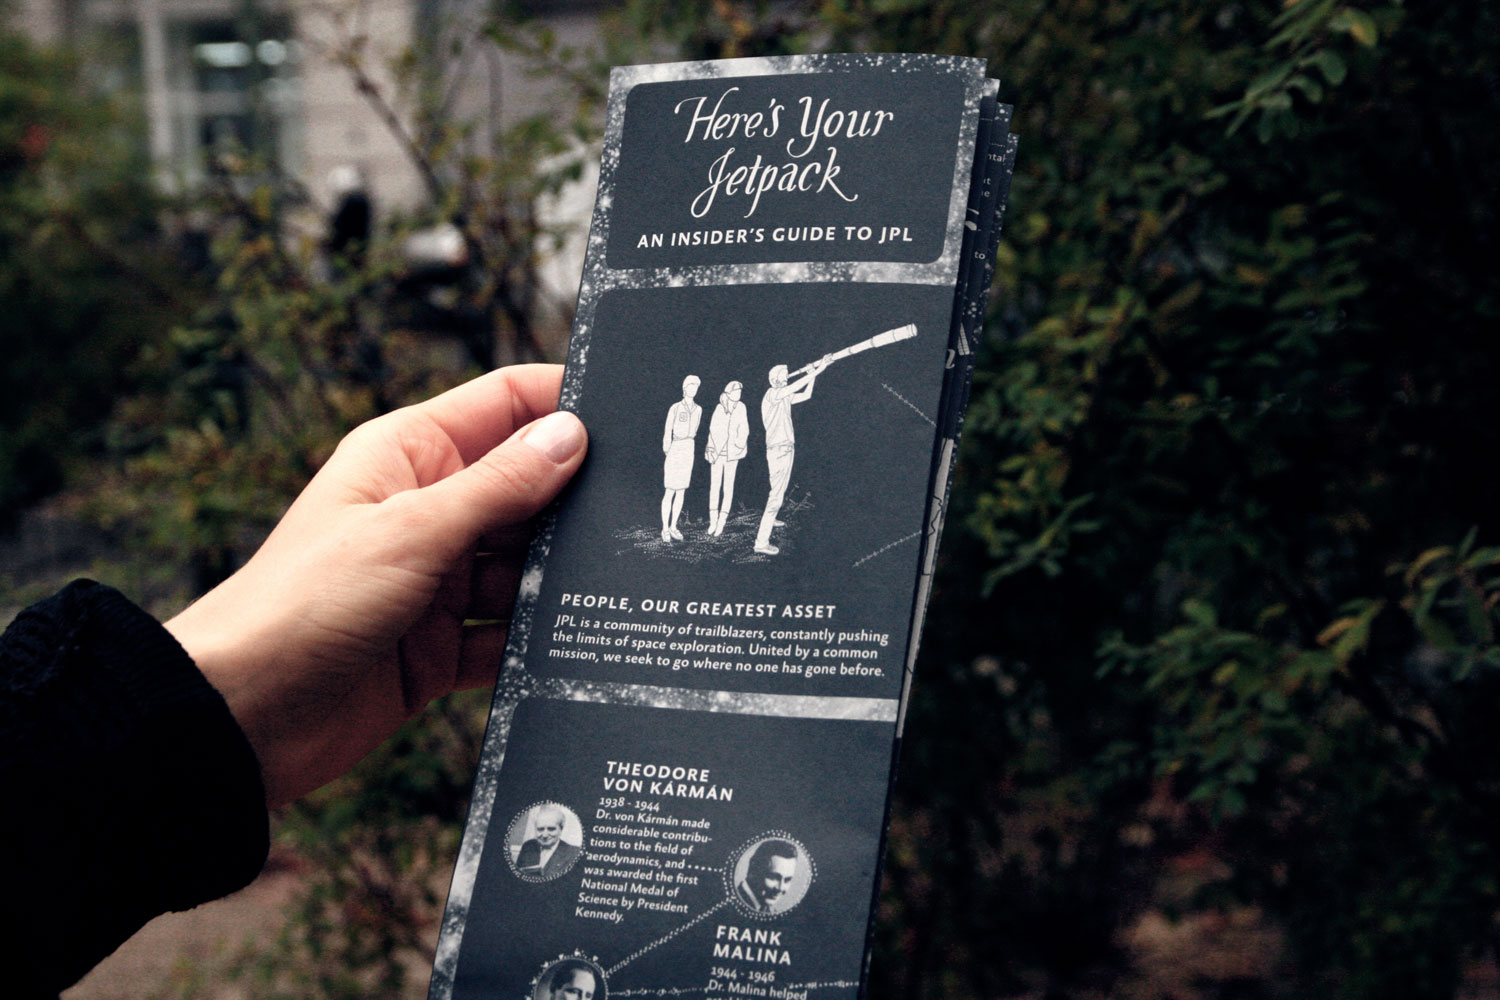 Here's Your
Jetpack
AN INSIDER'S GUIDE TO JPL
PEOPLE, OUR GREATEST ASSET
JPL is a community of trailblazers, constantly pushing
the limits of space exploration. United by a common
mission, we seek to go where no one has gone before.
THEODORE
VON KÁRMÁN
1938 - 1944
Dr. von Kármán made
considerable contribu-
tions to the field of
aerodynamics, and
was awarded the first
National Medal of
Science by President
Kennedy.
FRANK
MALINA
1944 - 1946
Dr. Malina helped
to